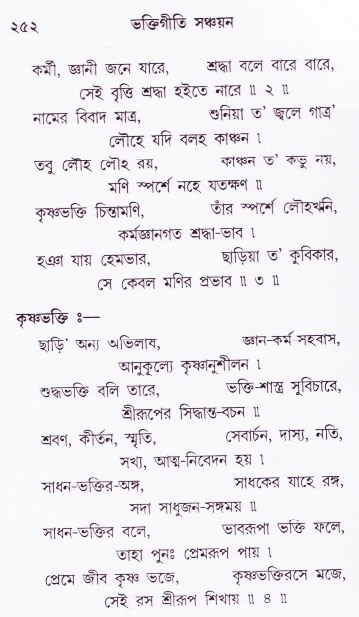 ২৫২ ভক্তিগীতি সঞ্চয়ন
কর্মী, জ্ঞানী জনে যারে, শ্রদ্ধা বলে বারে বারে,
সেই বৃত্তি শ্রদ্ধা হইতে নারে ॥ ২ ॥
নামের বিবাদ মাত্র, শুনিয়া ত’ জ্বলে গাত্র’
লৌহে যদি বলহ কাঞ্চন ।
তবু লৌহ লৌহ রয়, কাঞ্চন ত’ কভু নয়,
মণি স্পর্শে নহে যতক্ষণ ॥
কৃষ্ণভক্তি চিন্তামণি, তাঁর স্পর্শে লৌহখনি,
কর্মজ্ঞানগত শ্রদ্ধা-ভাব ।
হঞা যায় হেমভার, ছাড়িয়া ত’ কুবিকার,
সে কেবল মণির প্রভাব ॥ ৩ ॥
কৃষ্ণভক্তি ঃ—
ছাড়ি’ অন্য অভিলাষ, জ্ঞান-কর্ম সহবাস,
আনুকূল্যে কৃষ্ণানুশীলন ।
শুদ্ধভক্তি বলি তারে, ভক্তি-শাস্ত্র সুবিচারে,
শ্রীরূপের সিদ্ধান্ত-বচন ॥
শ্রবণ, কীর্তন, স্মৃতি, সেবার্চন, দাস্য, নতি,
সখ্য, আত্ম-নিবেদন হয় ।
সাধন-ভক্তির-অঙ্গ, সাধকের যাহে রঙ্গ,
সদা সাধুজন-সঙ্গময় ॥
সাধন-ভক্তির বলে, ভাবরূপা ভক্তি ফলে,
তাহা পুনঃ প্রেমরূপ পায় ।
প্রেমে জীব কৃষ্ণ ভজে, কৃষ্ণভক্তিরসে মজে,
সেই রস শ্রীরূপ শিখায় ॥ ৪ ॥